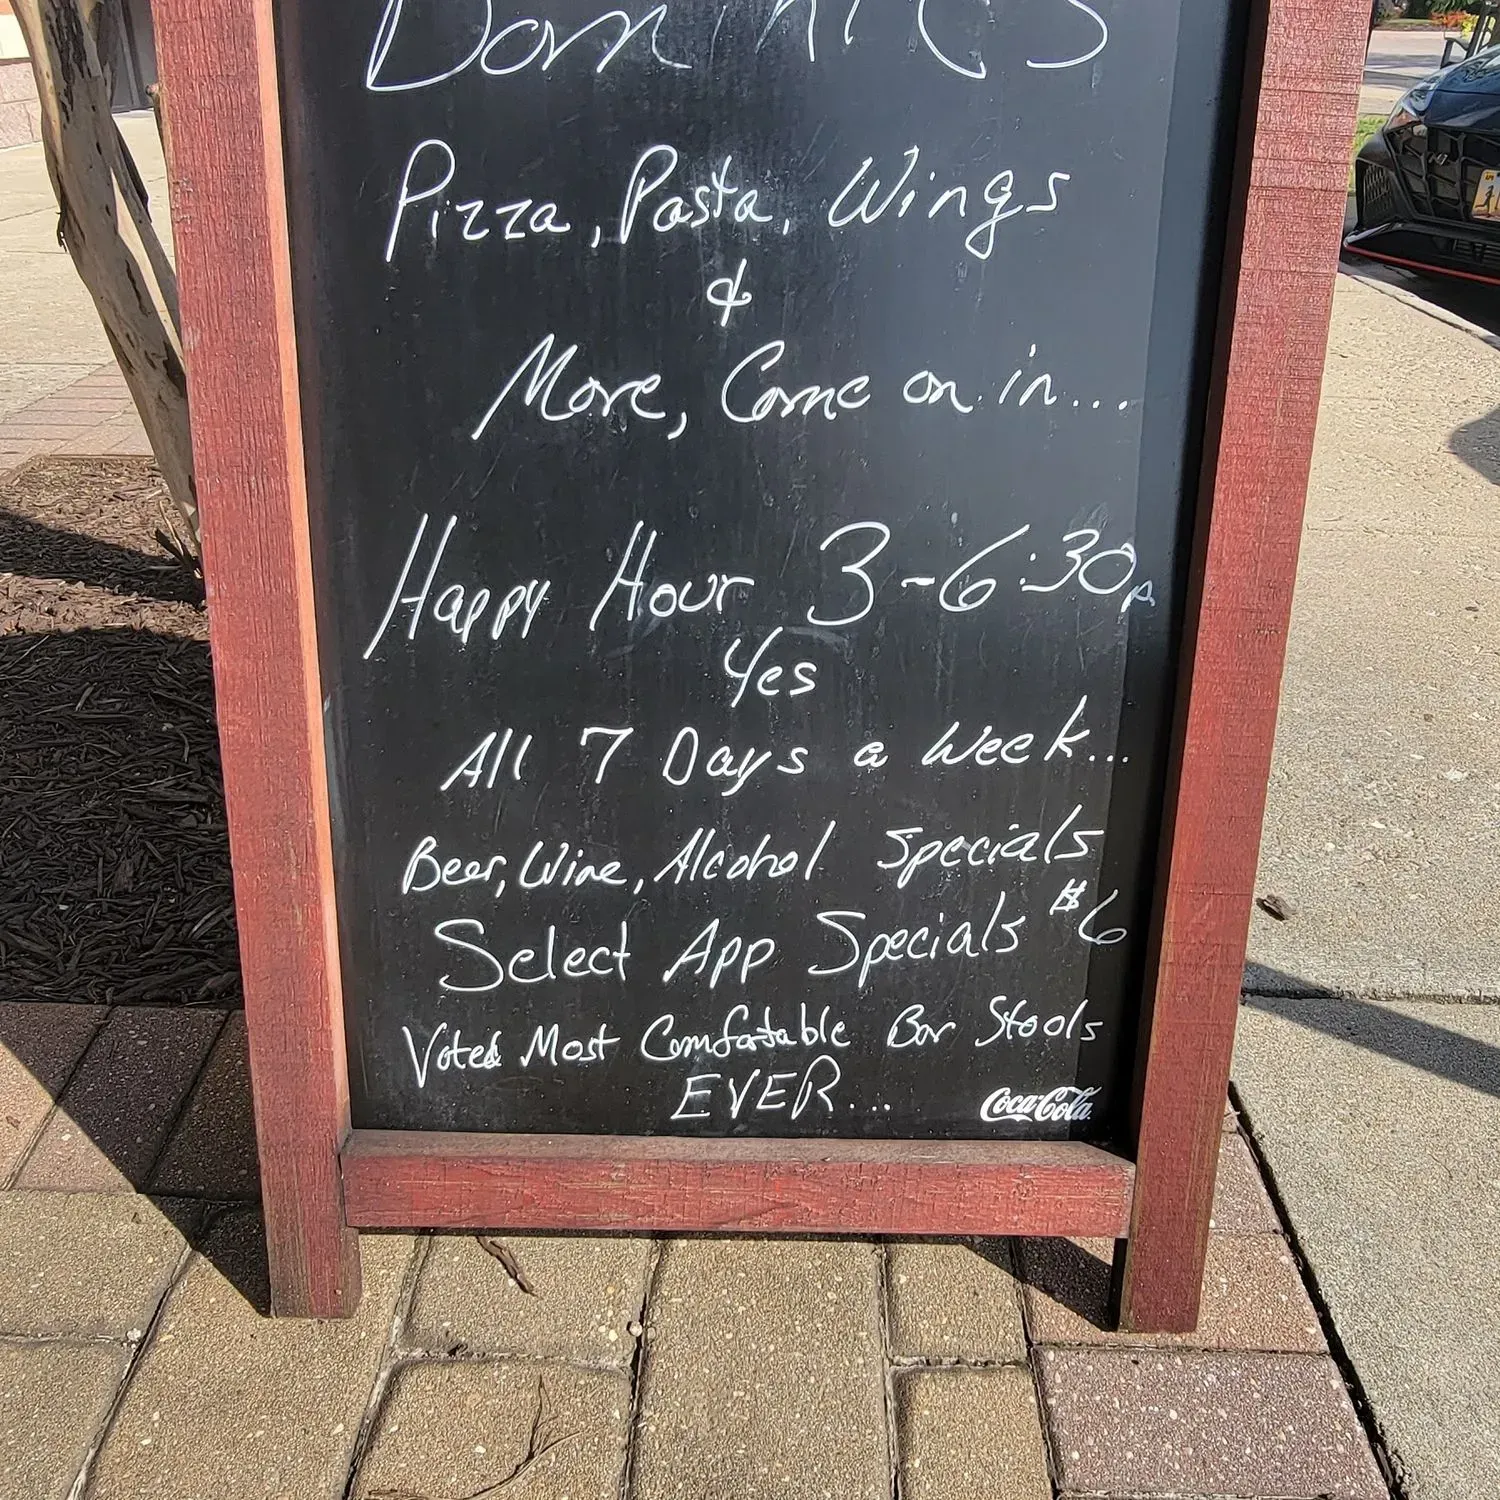 Dominic's
Pizza, Pasta, Wings
&
More, Come on in...
Happy Hour 3-6:30p
Yes
All 7 Days a Week...
Beer, Wine, Alcohol Specials
Select App Specials $6
Voted Most Comfortable Bar Stools
EVER...
Coca-Cola